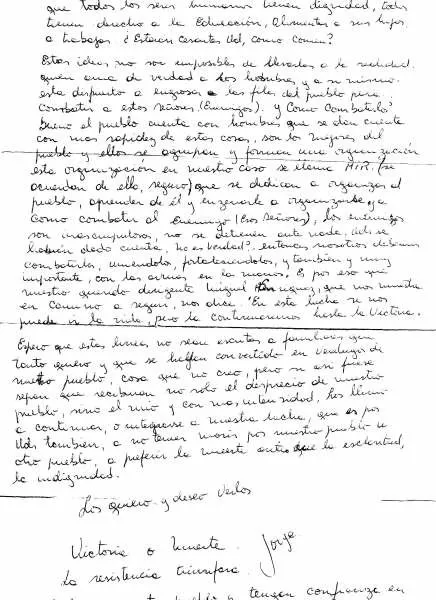 que todos los seres humanos tienen dignidad, todos
tienen derecho a la Educación, Alimentar a sus hijos,
a trabajar ¿Estaran cesantes Ud, como comen?
Estas ideas no son imposibles de llevarlas a la realidad.
quien ama de verdad a los hombres y a si mismo
esta dispuesto a engrosar las filas del pueblo para
combatir a estos señores (Enemigos). y Como Combatirlo?
Bueno el pueblo cuenta con hombres que se dan cuenta
con mas rapidez de estas cosas, son los mejores del
pueblo y ellos se agrupan y forman una organización
esta organización en nuestro caso se llama MIR. (se
acuerdan de ello, seguro) que se dedican a organizar al
pueblo, aprender de él y enseñarle a organizarse, a
Como combatir al Enemigo (los señores), los enemigos
son inescrupulosos, no se detienen ante nada, Uds. se
habrán dado cuenta, no es verdad? entonces nosotros debemos
combatirlos, uniendolo, fortaleciendolo, y tambien y muy
importante, con las armas en la mano. Es por eso que
nuestro querido dirigente Miguel que nos
en camino a seguir, nos dice. En esta lucha se nos
puede ir la vida, pero la continuaremos hasta la Victoria.
Espero que estas lineas no sean escritas a familiares que
tanto quiero y que se hallan convertido en verdugos de
nuestro pueblo, cosa que no creo, pero si asi fuese
sepan que recibiran no solo el desprecio de nuestro
pueblo, sino el mio y con mas intensidad. Los llamo
a continuar, o integrarse a nuestra lucha, que es por
Uds tambien, a no tener mas por nuestro pueblo u
otro pueblo, a preferir la muerte antes que la esclavitud,
la indignidad.
Los quiero y deseo verlos
Victoria o Muerte. Jorge
La resistencia triunfara.
pueblo y tengan confianza en